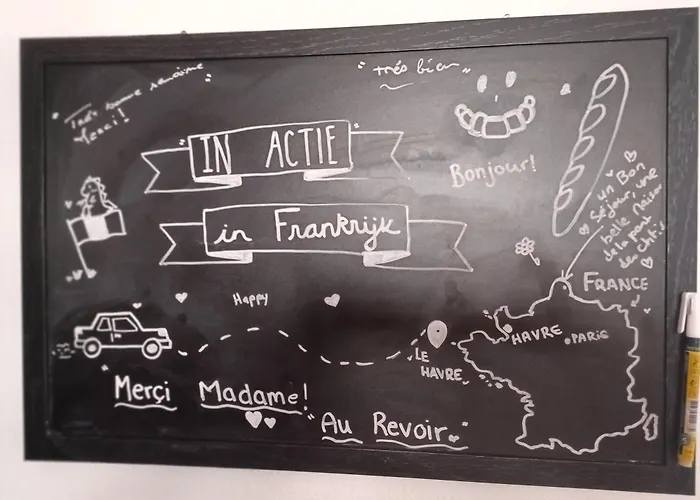 "Très bonne semaine
Merci!
"trés bien"
"IN ACTIE"
Bonjour!
in Frankrijk
un Bon
Séjour, une
belle Maison
de la part
des chtis
FRANCE
Happy
HAVRE
PARIS
LE
HAVRE
"Merçi Madame!"
"Au Revoir"